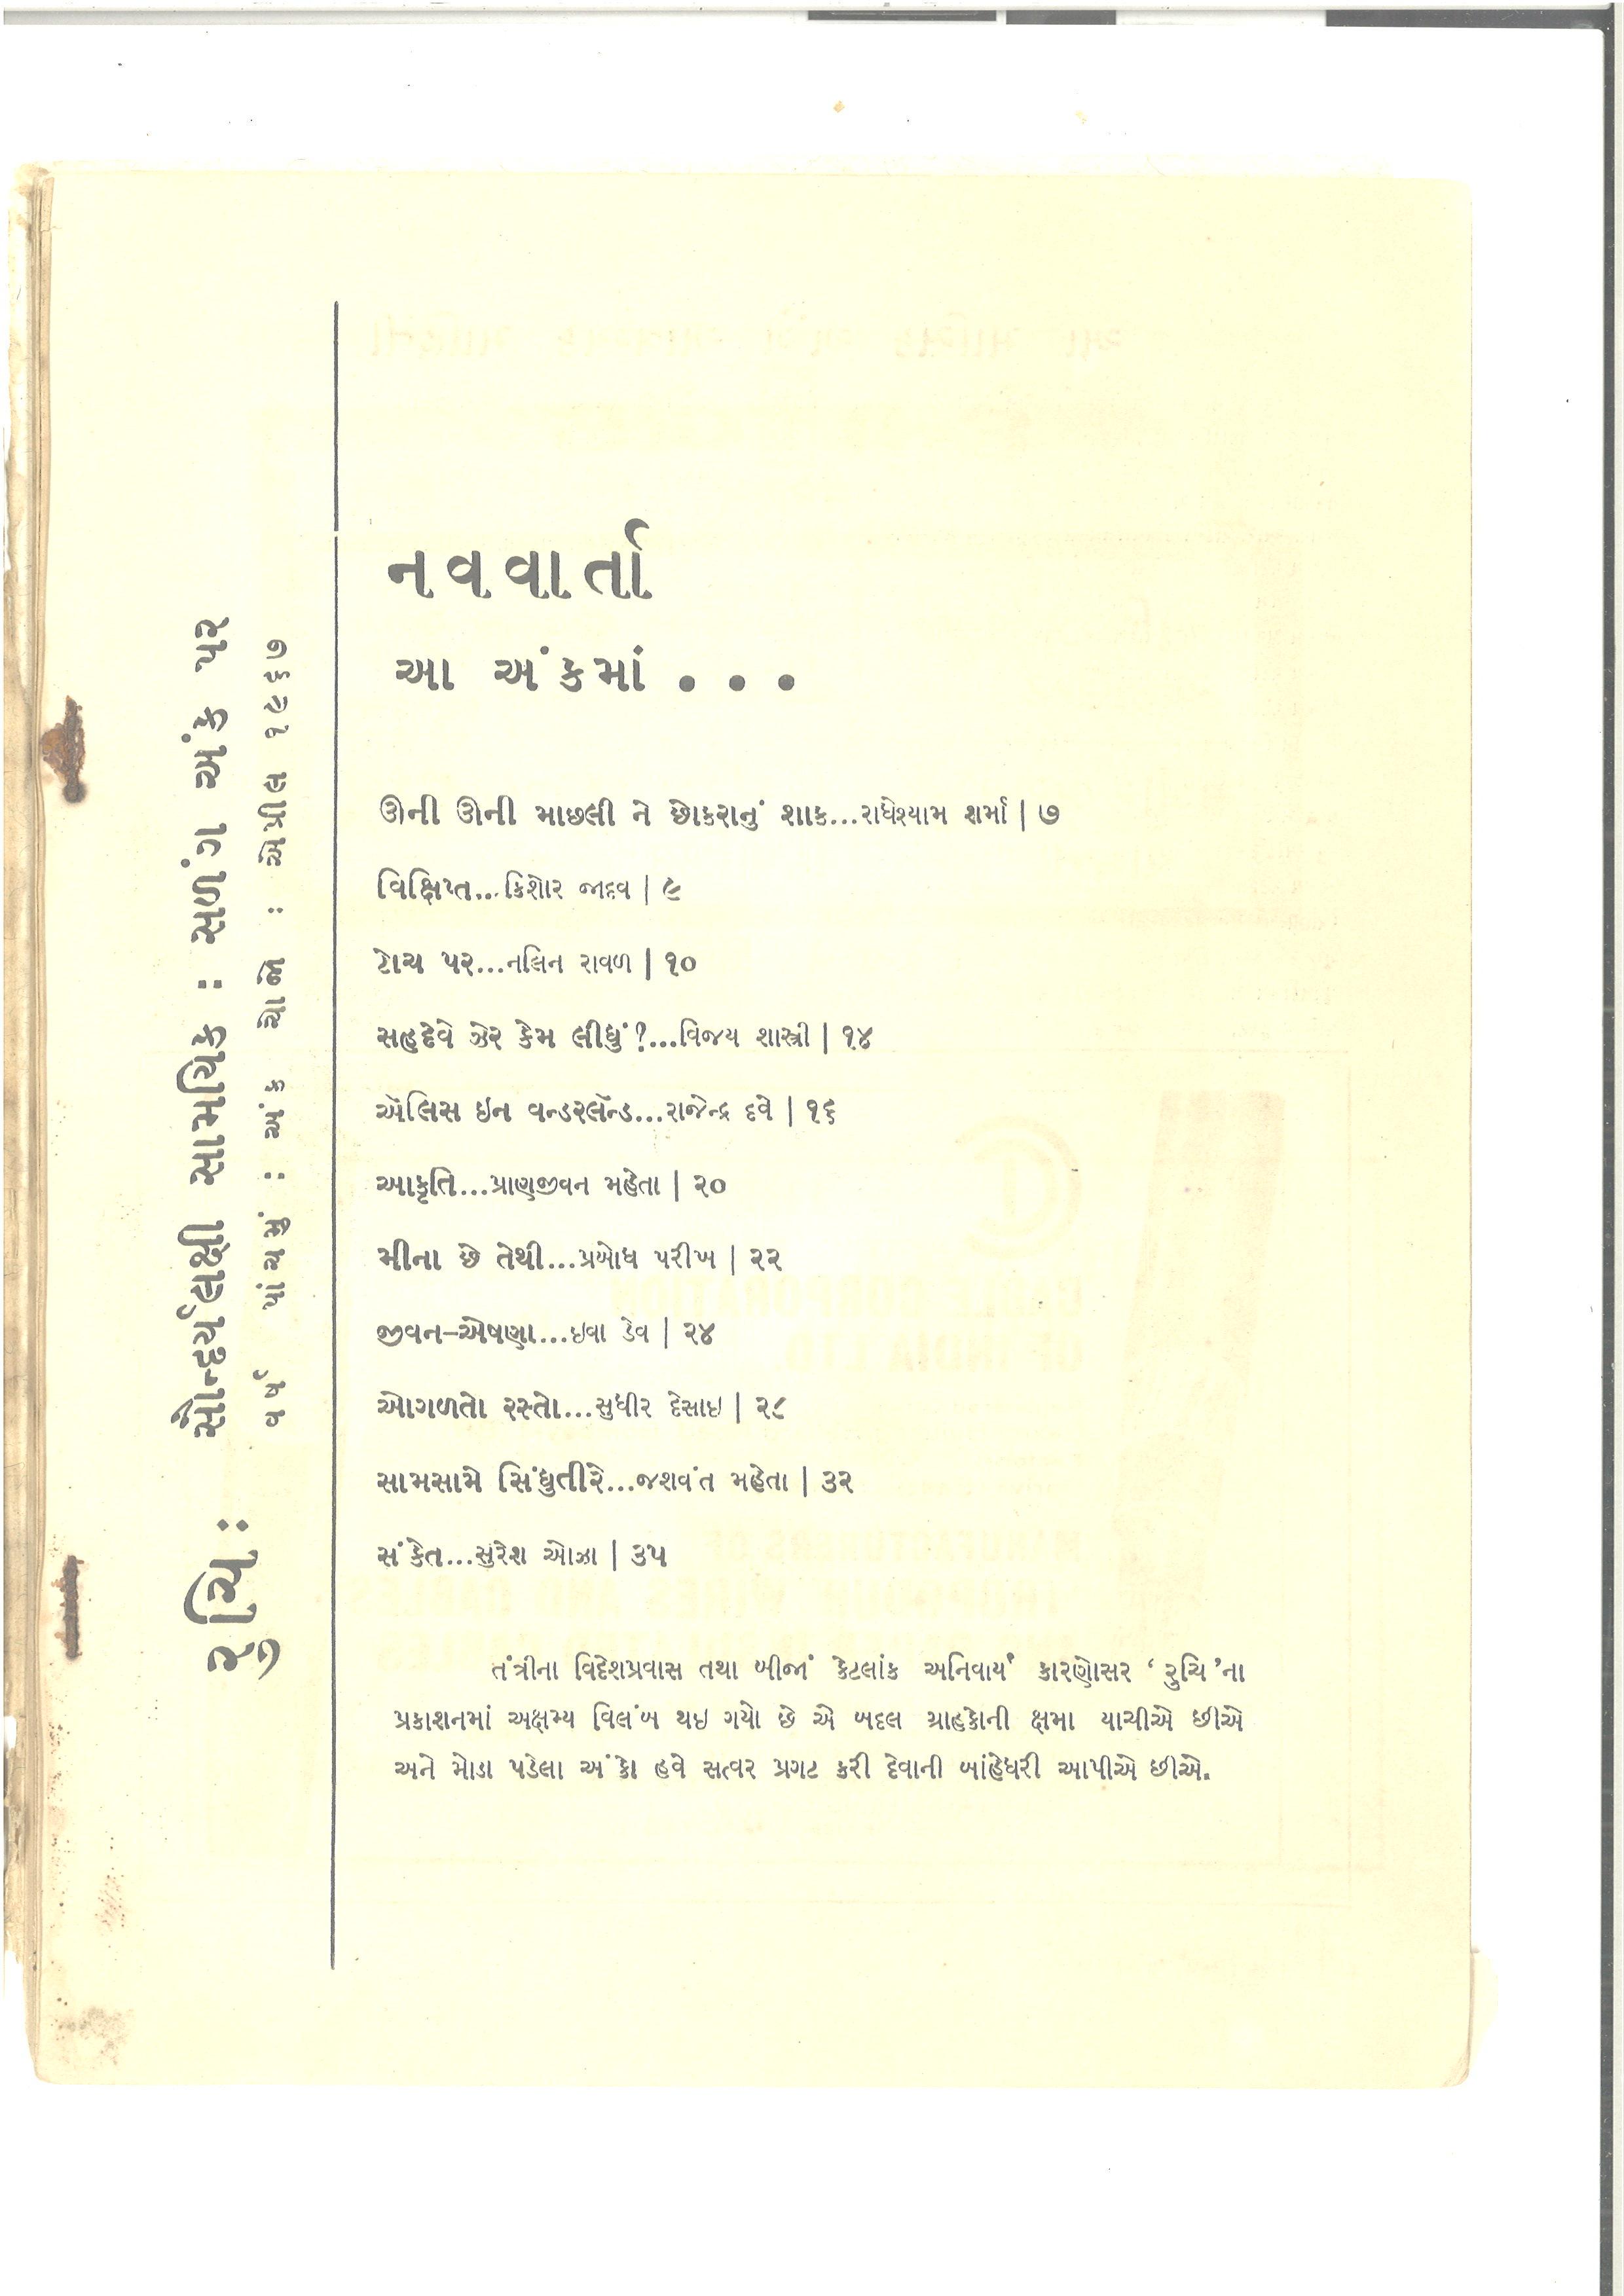 રુચિ: સૌન્દર્યલક્ષી સામયિક : સળંગ અંક ૫૨
વર્ષ પાંચમું : અંક ચોથો : એપ્રીલ ૧૯૬૭
નવવાર્તા
આ અંકમાં...
ઊની ઊની માછલી ને છોકરાનું શાક...રાધેશ્યામ શર્મા | ૭
વિક્ષિપ્ત...કિશોર જાદવ | ૯
ટોચ પર...નલિન રાવળ | ૧૦
સહદેવે ઝેર કેમ લીધું?...વિજય શાસ્ત્રી | ૧૪
ઍલિસ ઇન વન્ડરલૅન્ડ...રાજેન્દ્ર દવે | ૧૬
આકૃતિ...પ્રાણજીવન મહેતા | ૨૦
મીના છે તેથી...પ્રબોધ પરીખ | ૨૨
જીવન-એષણા...ઇવા ડેવ | ૨૪
ઓગળતો રસ્તો...સુધીર દેસાઇ | ૨૮
સામસામે સિંધુતીરે...જશવંત મહેતા | ૩૨
સંકેત...સુરેશ ઓઝા | ૩૫
તંત્રીના વિદેશપ્રવાસ તથા બીજાં કેટલાંક અનિવાર્ય કારણોસર ‘રુચિ’ના
પ્રકાશનમાં અક્ષમ્ય વિલંબ થઇ ગયો છે એ બદલ ગ્રાહકોની ક્ષમા યાચીએ છીએ
અને મોડા પડેલા અંકો હવે સત્વર પ્રગટ કરી દેવાની બાંહેધરી આપીએ છીએ.